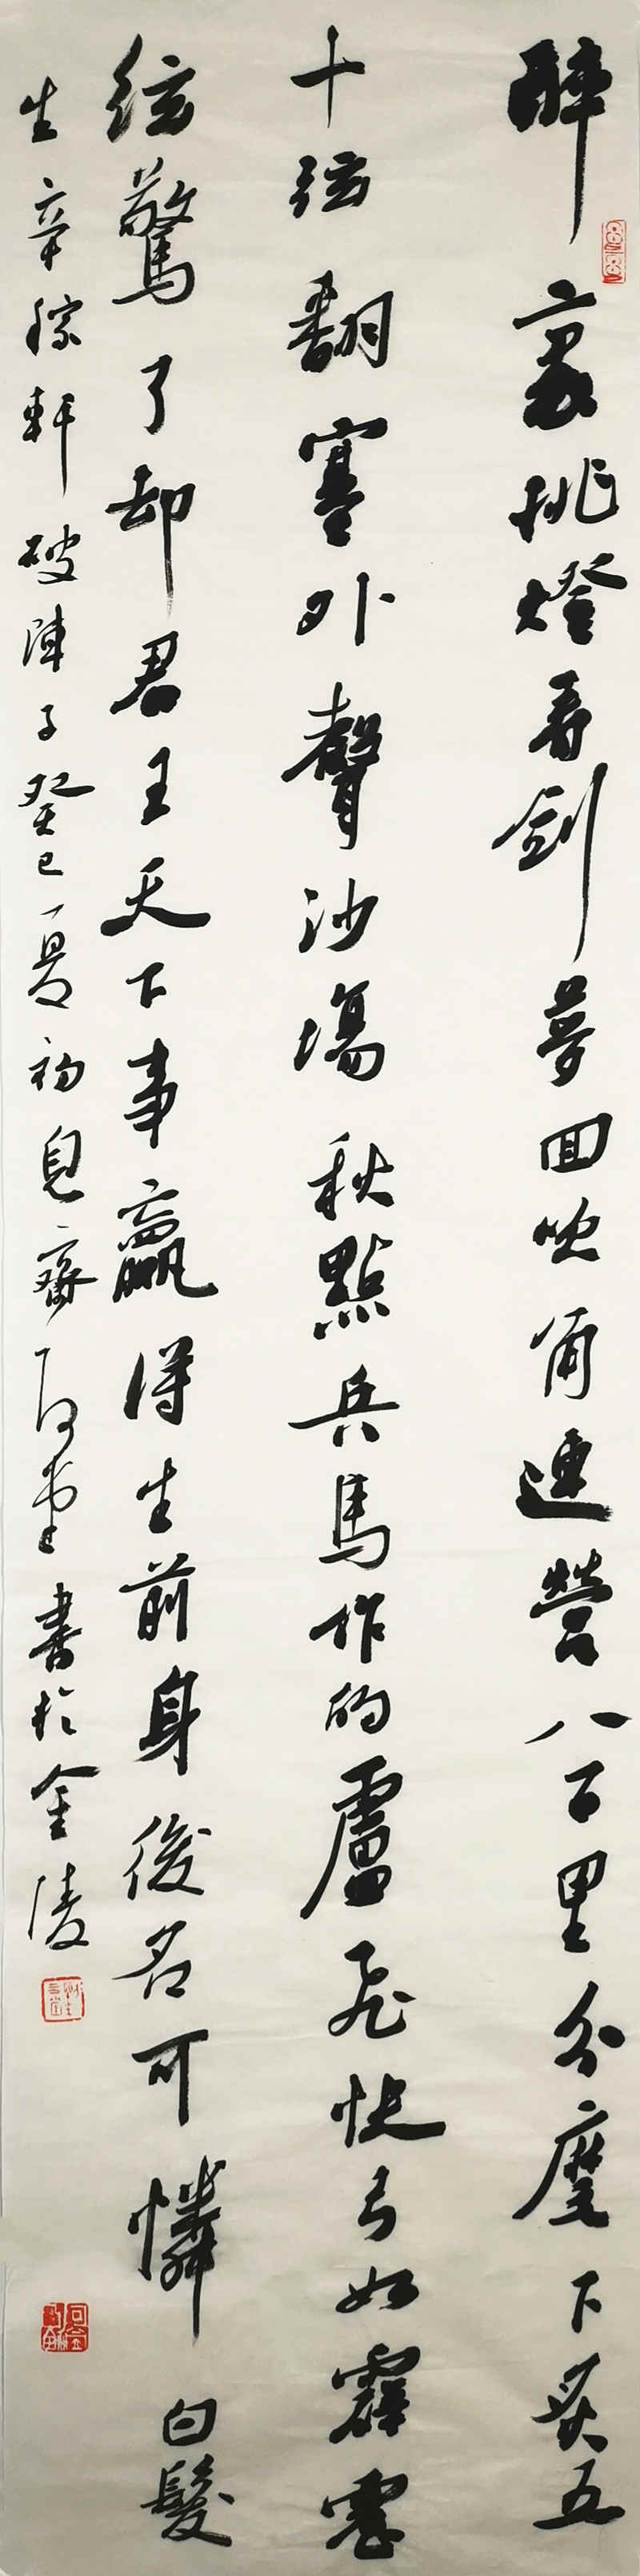 醉裏挑燈看劍夢回吹角連營八百里分麾下炙五
十弦翻塞外聲沙場秋點兵馬作的盧飛快弓如霹靂
弦驚了却君王天下事贏得生前身後名可憐白髮
生辛稼軒破陣子癸巳夏初見齋 書於金陵